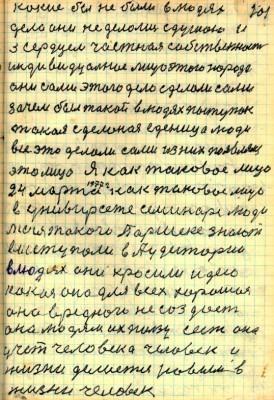 какие бы не были в людях 101
дела они не делали с душою и
з сердцем частная собственность
индивидуалное лицо этого народа
они сами этого дело сделали сами
зачем был такой в людях поступок
такая сделаная еденица люди
все это делали сами из них появляли
это лицо Я как таковое лицо
24 марта как таковое лицо
в университе семинаре люди
меня такого Паршека знают
выступали в Аудитории
в людях они красили идею
какая она для всех хорошая
она вредного не создает
она людям их пользу есть она
учит человека человек и
жизни делается новым в
жизни человек